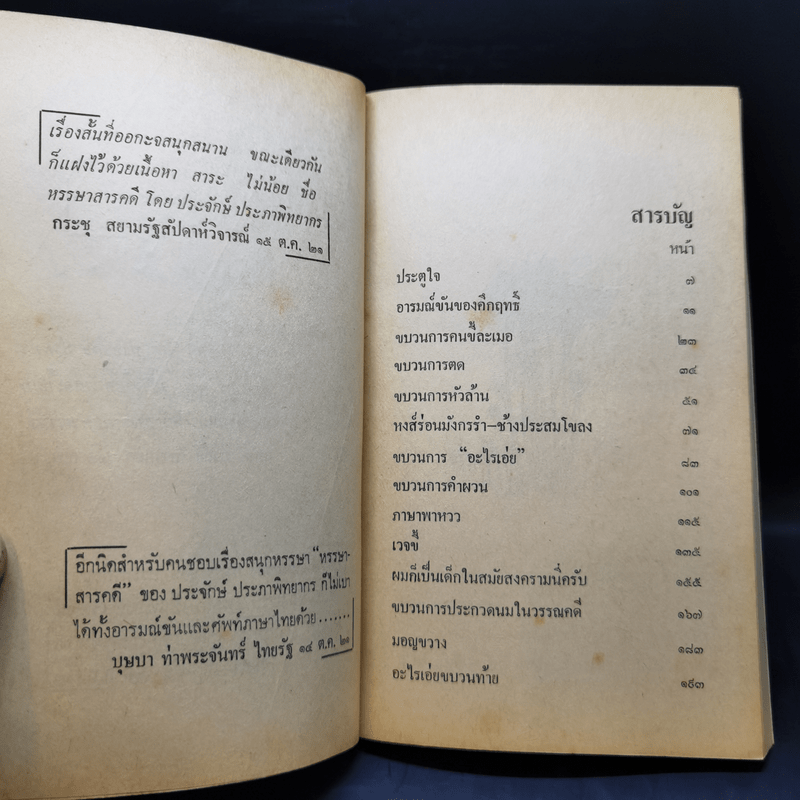 เรื่องสั้นที่ออกะจสนุกสนาน ขณะเดียวกัน
ก็แฝงไว้ด้วยเนื้อหา สาระ ไม่น้อย ชื่อ
หรรษาสารคดี โดย ประจักษ์ ประภาพิทยากร
กระชุ สยามรัฐสัปดาห์วิจารณ์ ๑๕ ต.ค. ๒๑
อีกนิดสำหรับคนชอบเรื่องสนุกหรรษา "หรรษา-
สารคดี" ของ ประจักษ์ ประภาพิทยากร ก็ไม่เบา
ได้ทั้งอารมณ์ขันและศัพท์ภาษาไทยด้วย.......
บุษบา ท่าพระจันทร์ ไทยรัฐ ๑๔ ต.ค. ๒๑
สารบัญ
หน้า
ประตูใจ ๗
อารมณ์ขันของคึกฤทธิ์ ๑๑
ขบวนการคนขี้ละเมอ ๒๓
ขบวนการตด ๓๔
ขบวนการหัวล้าน ๕๑
หงส์ร่อนมังกรรำ—ช้างประสมโขลง ๗๑
ขบวนการ "อะไรเอ่ย" ๘๓
ขบวนการคำผวน ๑๐๑
ภาษาพาหวว ๑๑๕
เวจขี้ ๑๓๕
ผมก็เป็นเด็กในสมัยสงครามนี่ครับ ๑๕๕
ขบวนการประกวดนมในวรรณคดี ๑๖๗
มอญขวาง ๑๘๓
อะไรเอ่ยขบวนท้าย ๑๙๓